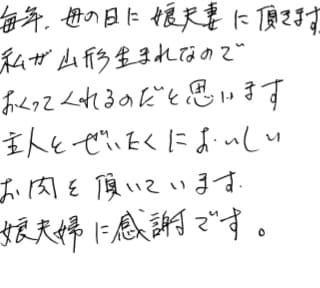 毎年、母の日に娘夫妻に頂きます
私が山形生まれなので
おくってくれるのだと思います
主人とぜいたくにおいしい
お肉を頂いています。
娘夫婦に感謝です。